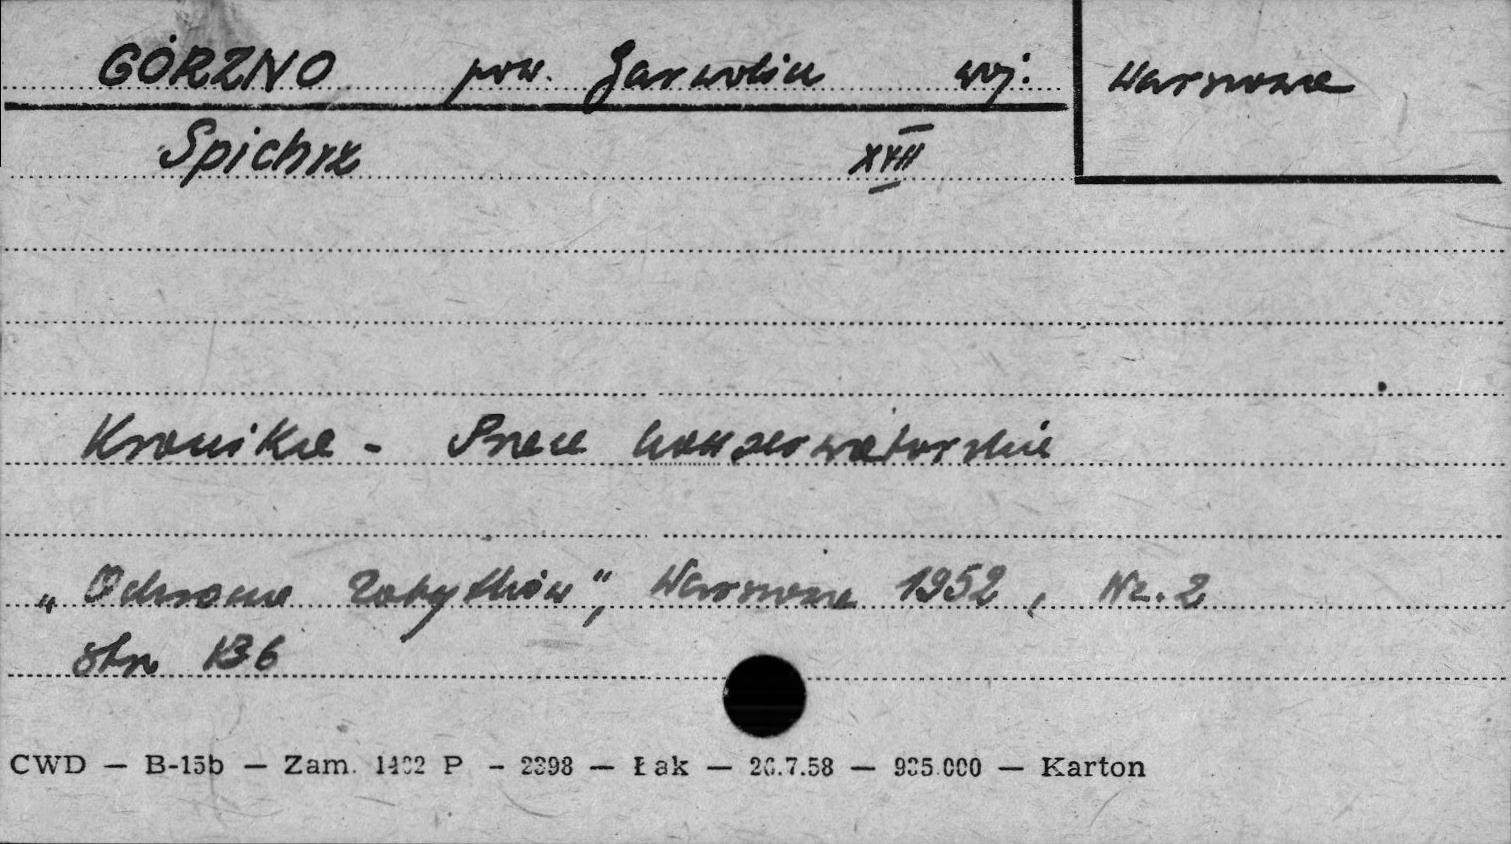 GÓRZNO pow. Garwolin woj: Warszawa
Spichrz XVII
Kronika - Prace konserwatorskie
„Ochrona Zabytków", Warszawa 1952, Nr. 2
str 136
CWD — B-15b — Zam. 1402 P - 2398 — Łak — 26.7.58 — 935.000 — Karton